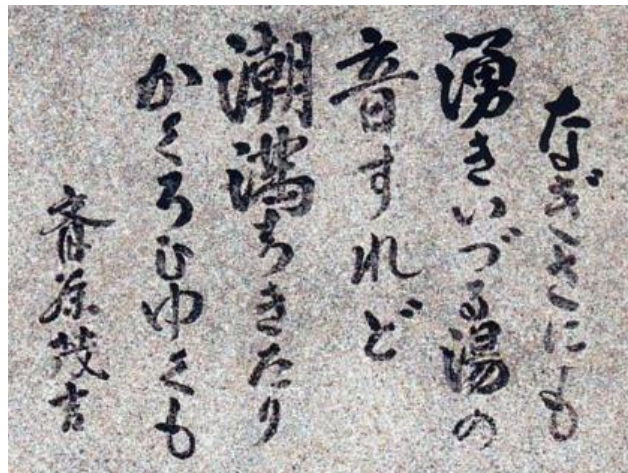 なぎさにも
湧きいづる湯の
音すれど
潮満ちきたり
かくろひゆくも
斎藤茂吉